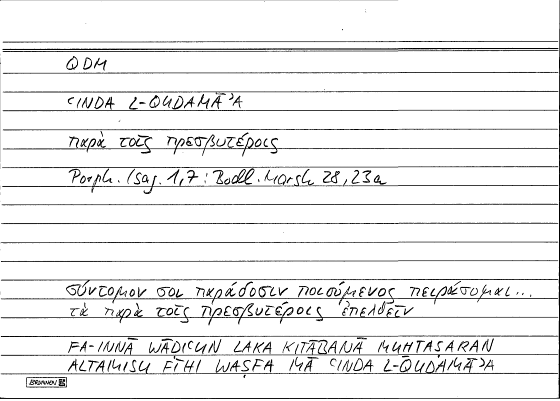 QDM
ʿINDA L-QUDAMĀʾA
παρὰ τοῖς πρεσβυτέροις
Porph. Isag. 1,7 : Bodl. Marsh 28, 23a
σύντομόν σοι παράδοσιν ποιούμενος πειράσομαι...
τὰ παρὰ τοῖς πρεσβυτέροις ἐπελθεῖν
FA-INNĀ WĀDIʿUN LAKA KITĀBANĀ MUHTAṢARAN
ALTAMISU FĪHI WAṢFA MĀ ʿINDA L-QUDAMĀʾA
BRUNNEN